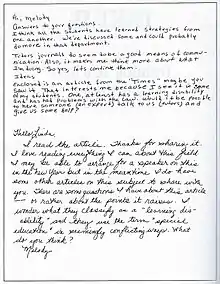 Hi, Melody
Answers to your questions.
I think all the students have learned strategies from
one another. We've discussed some and could probably
do more in that department.
Yes, journals to seem to be a good means of commu-
nication. Also, it makes me think more about what
I'm doing. So yes, lets continue them.
Ideas
Enclosed is an article from the "Times" maybe you
saw it. That interests me because I see it in some
of my students. One, at least, has a learning disability
and has had problems with the law. Would it be possible
to have someone (an expert) talk to us (tutors) and
give us some help?
Linda,
I read the article. Thanks for sharing it.
I love reading everything I can about this field.
I may be able to arrange for a speaker on this
in the New Year but in the meantime I do have
some other articles on this subject to share with
you. There are some questions I have about this article
— or rather about the points it raises. I
wonder what they classify as a "learning dis-
ability" and they use the term "special
education" in seemingly conflicting ways. What
do you think?
Melody